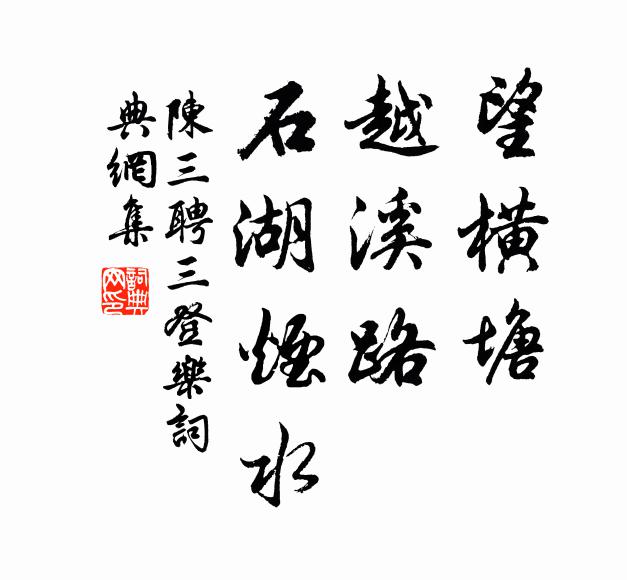 望橫塘
越溪路
石湖煙水
陳三聘三登樂詞
典網集
詞典網印